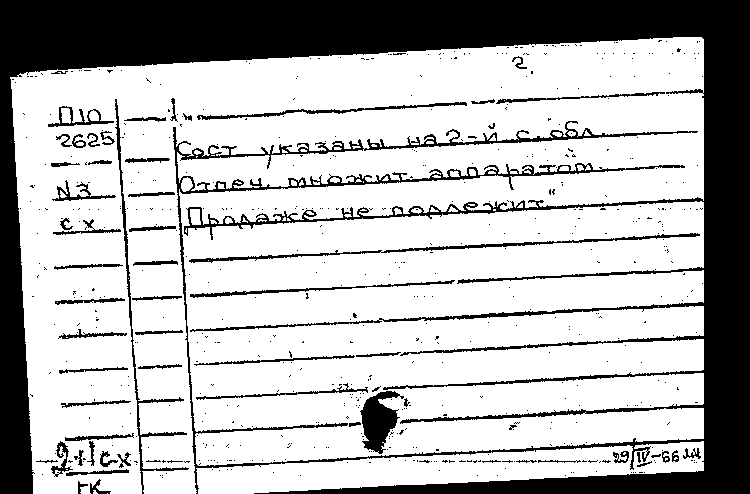 2.
П10
2625 Сост указаны на 2-й с. обл.
N3 Отпеч. множит. аппаратом.
сх "Продаже не подлежит"
2+1 сх
гк
29/IV-66